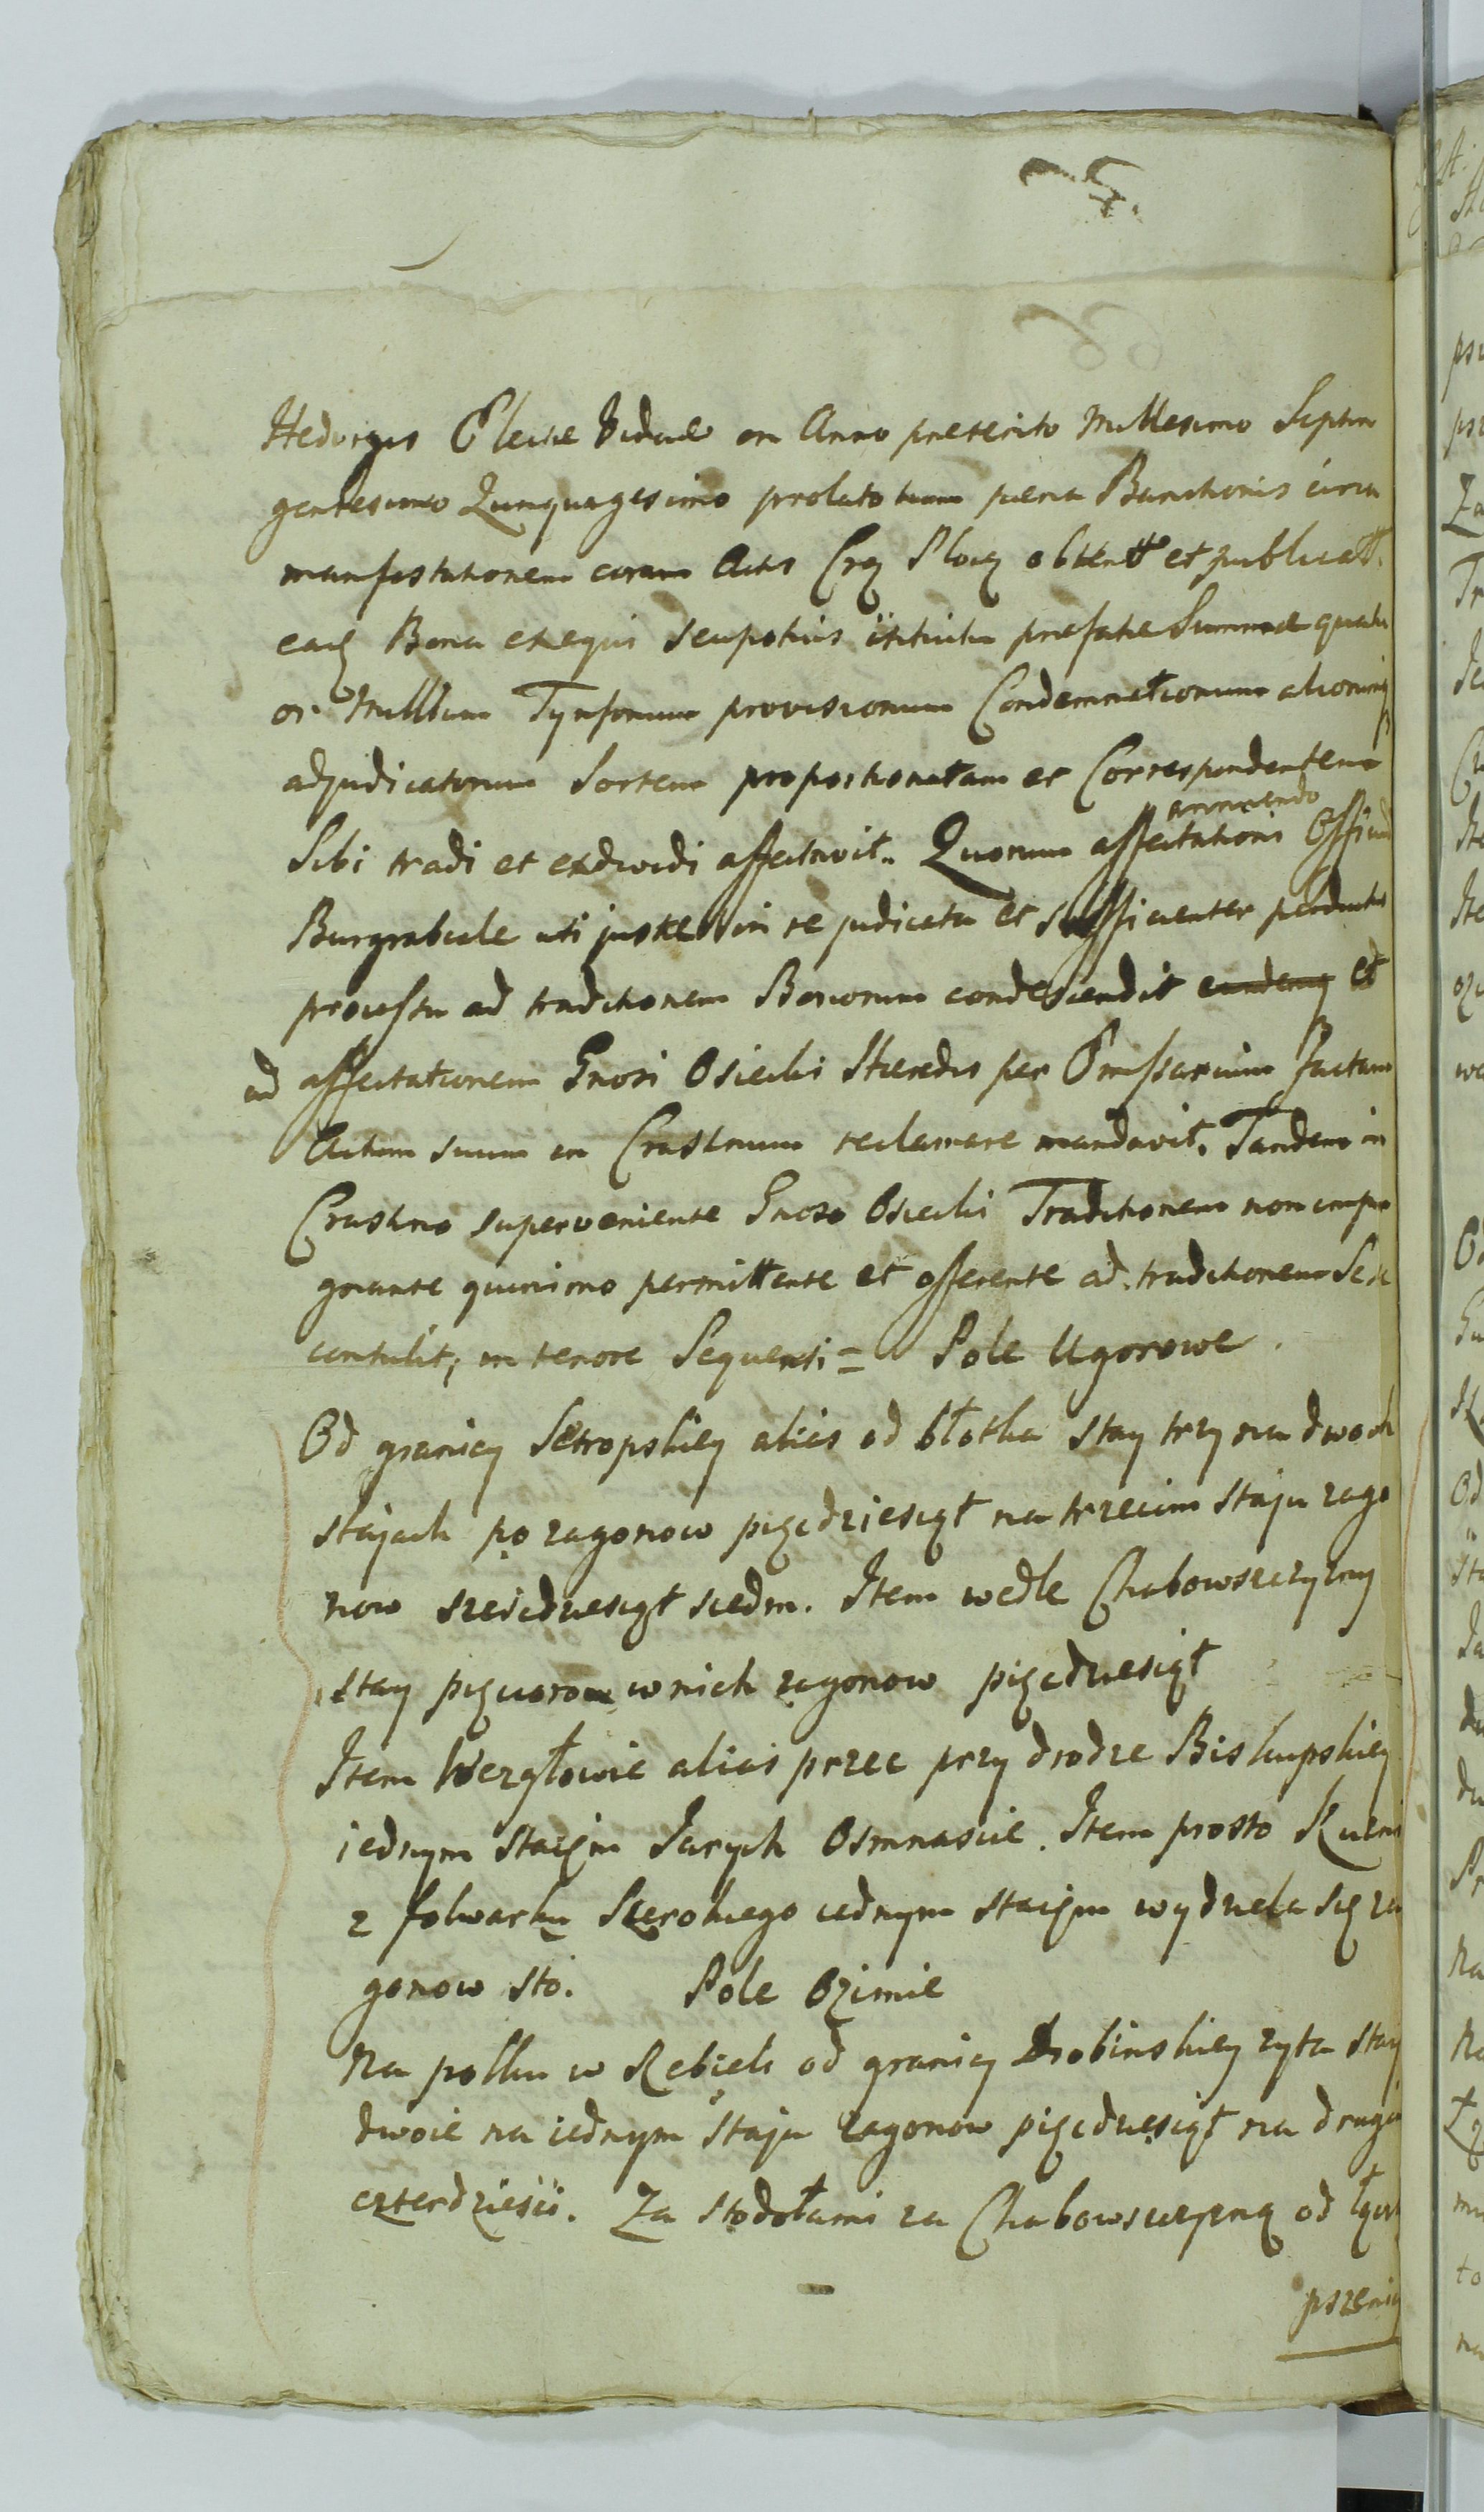 5.
Hedvigis Viduae in Anno preterito Millesimo Septin
gentesimo Quinquagesimo prolato tum pena Bannitionis
manifestationem coram Actis Crg Plocg obtentt et publicatt.
eadg Bona exequi seupotius intuitu prefatae Summae quatu
or Millium Tynforum provisionum Condemnationum aliorumq
adjudicatorum Sortem proportionatam et Correspondentem
annuendo
Sibi tradi et exdividi affectavit. Quorum affectationi Offi
Burgrabiale uti juste in re judicata et sufficienter
processu ad traditionem Bonorum condescendit eundemq et
ad affectationem Gnosi Osiecki Haeredis per factam
Actum suum in Crastinum reclamare mandavit. Tandem in
Crastino superveniente Gnoso Osiecki Traditionem non impu
gnante quinimo permittente et offerente ad traditionem Se se
contulit, in tenore Sequenti = Pole Ugorowe
Od granicy Setropskiey alias od błotka stay trzy na dwoch
stajach po zagonow pięćdziesiąt na trzecim staju zago
now sześćdziesiąt siedm. Item wedle Chabowszczyzny
stay pięcioro w nich zagonow pięćdziesiąt
Item Wezgłowie alias przec przy drodze Biskupskiey
iednym staięm Jarych Osmnascie. Item prosto
z folwarku Szerokiego iednym staięm wydziela się za
gonow sto. Pole Ozimie
Na polku w Rebiełi od granicy Drobinskiey zyta stay
dwoie na iednym staju zagonow pięćdziesiąt na
czterdziesci. Za stodołami za Chabowszczyzną od
pszenicy